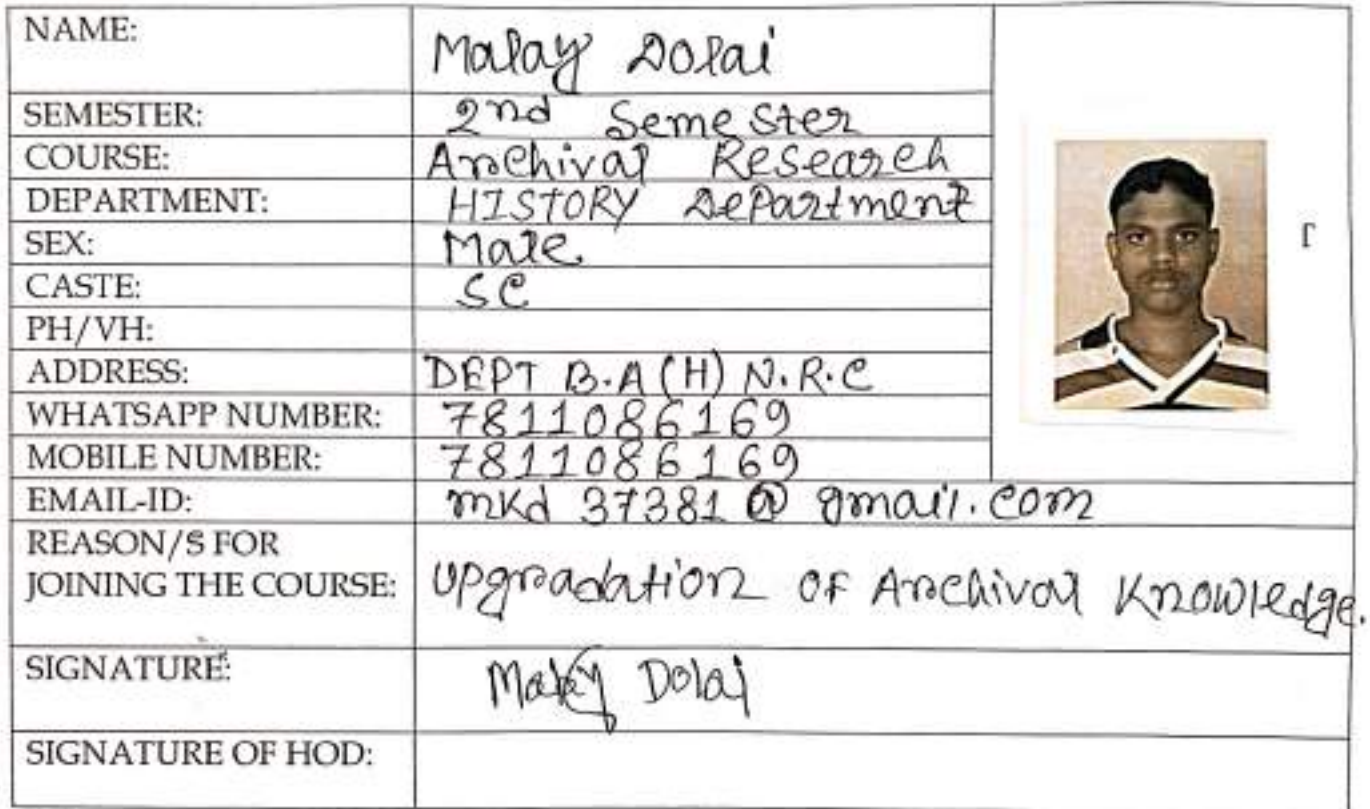 NAME: Malay Dolai
SEMESTER: 2nd Semester
COURSE: Archival Research
DEPARTMENT: HISTORY Department
SEX: Male
CASTE: SC
PH/VH:
ADDRESS: DEPT B.A (H) N.R.C
WHATSAPP NUMBER: 7811086169
MOBILE NUMBER: 7811086169
EMAIL-ID: mkd 37381 @ gmail.com
REASON/S FOR
JOINING THE COURSE: upgradation of Archival Knowledge.
SIGNATURE: Malay Dolai
SIGNATURE OF HOD: